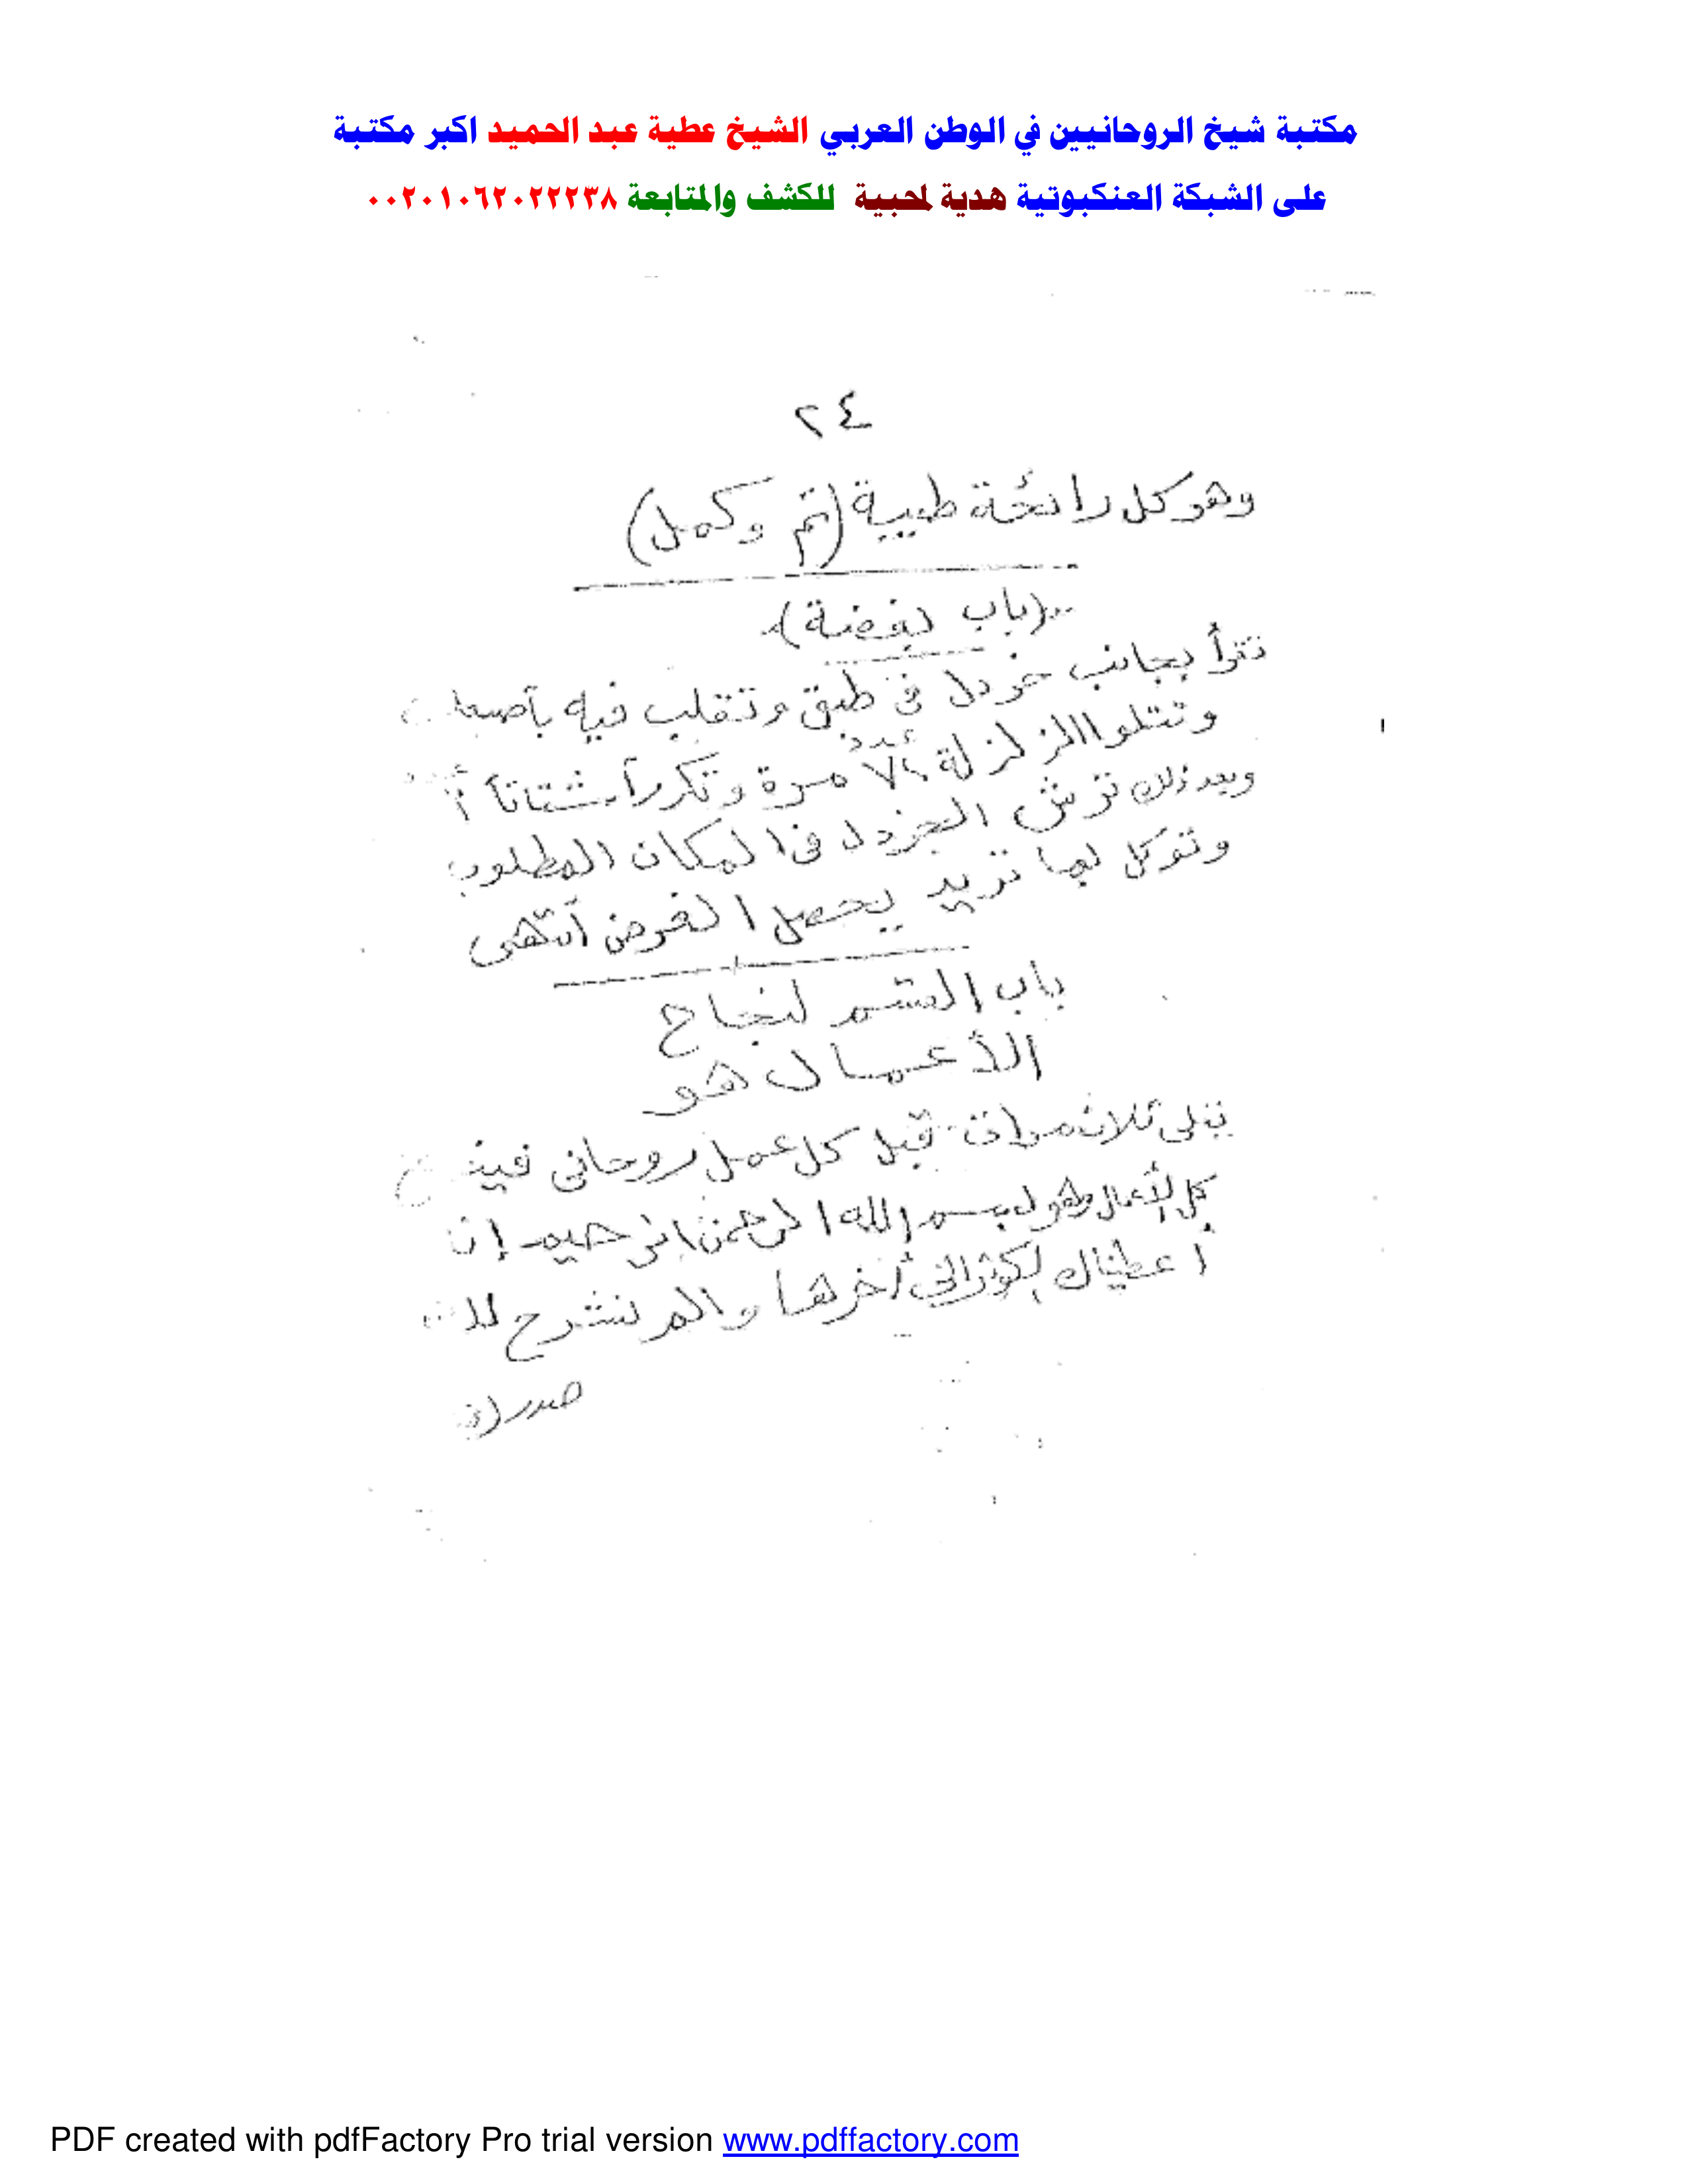 مكتبة شيخ الروحانيين في الوطن العربي الشيخ عطية عبد الحميد اكبر مكتبة
على الشبكة العنكبوتية هدية لمحبية للكشف والمتابعة ٠٠٢٠١٠٦٢٠٢٢٢٣٨
٢٤
وهو كل رائحة طيبة (تم وكمل)
(باب بغضة)
تقرأ بجانب خردل فى طبق وتقلب فيه
وتتلوا الزلزلة عدد مرة وتكرر أشتاتاً
وبعد ذلك ترش الخردل فى المكان المطلوب
وتوكل بما تريد يحصل الغرض أنتهى
باب القسم لنجاح
الأعمال هو
يتلى ثلاث مرات قبل كل عمل روحانى
كل الأعمال وهو بسم الله الرحمن الرحيم إن
أعطيناك الكوثر الى أخرها والم نشرح لك
صدرك
PDF created with pdfFactory Pro trial version www.pdffactory.com